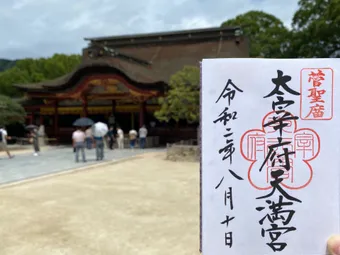 菅聖廟
太宰府天満宮
令和二年八月十日